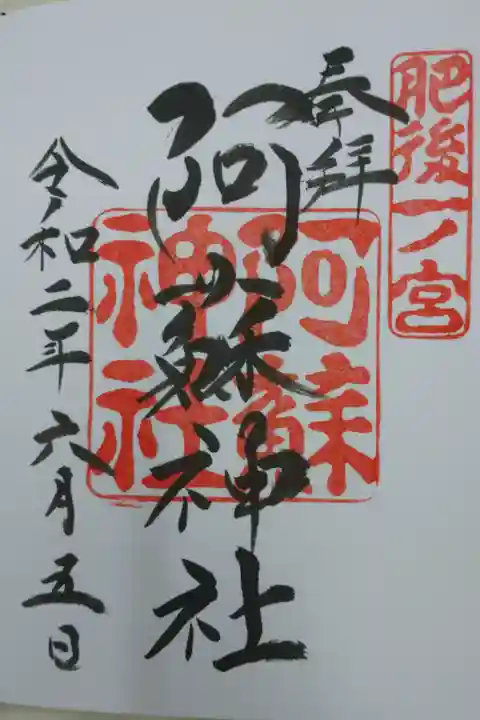 肥後一ノ宮
奉拝
阿蘇神社
阿蘇
神社
令和二年六月五日